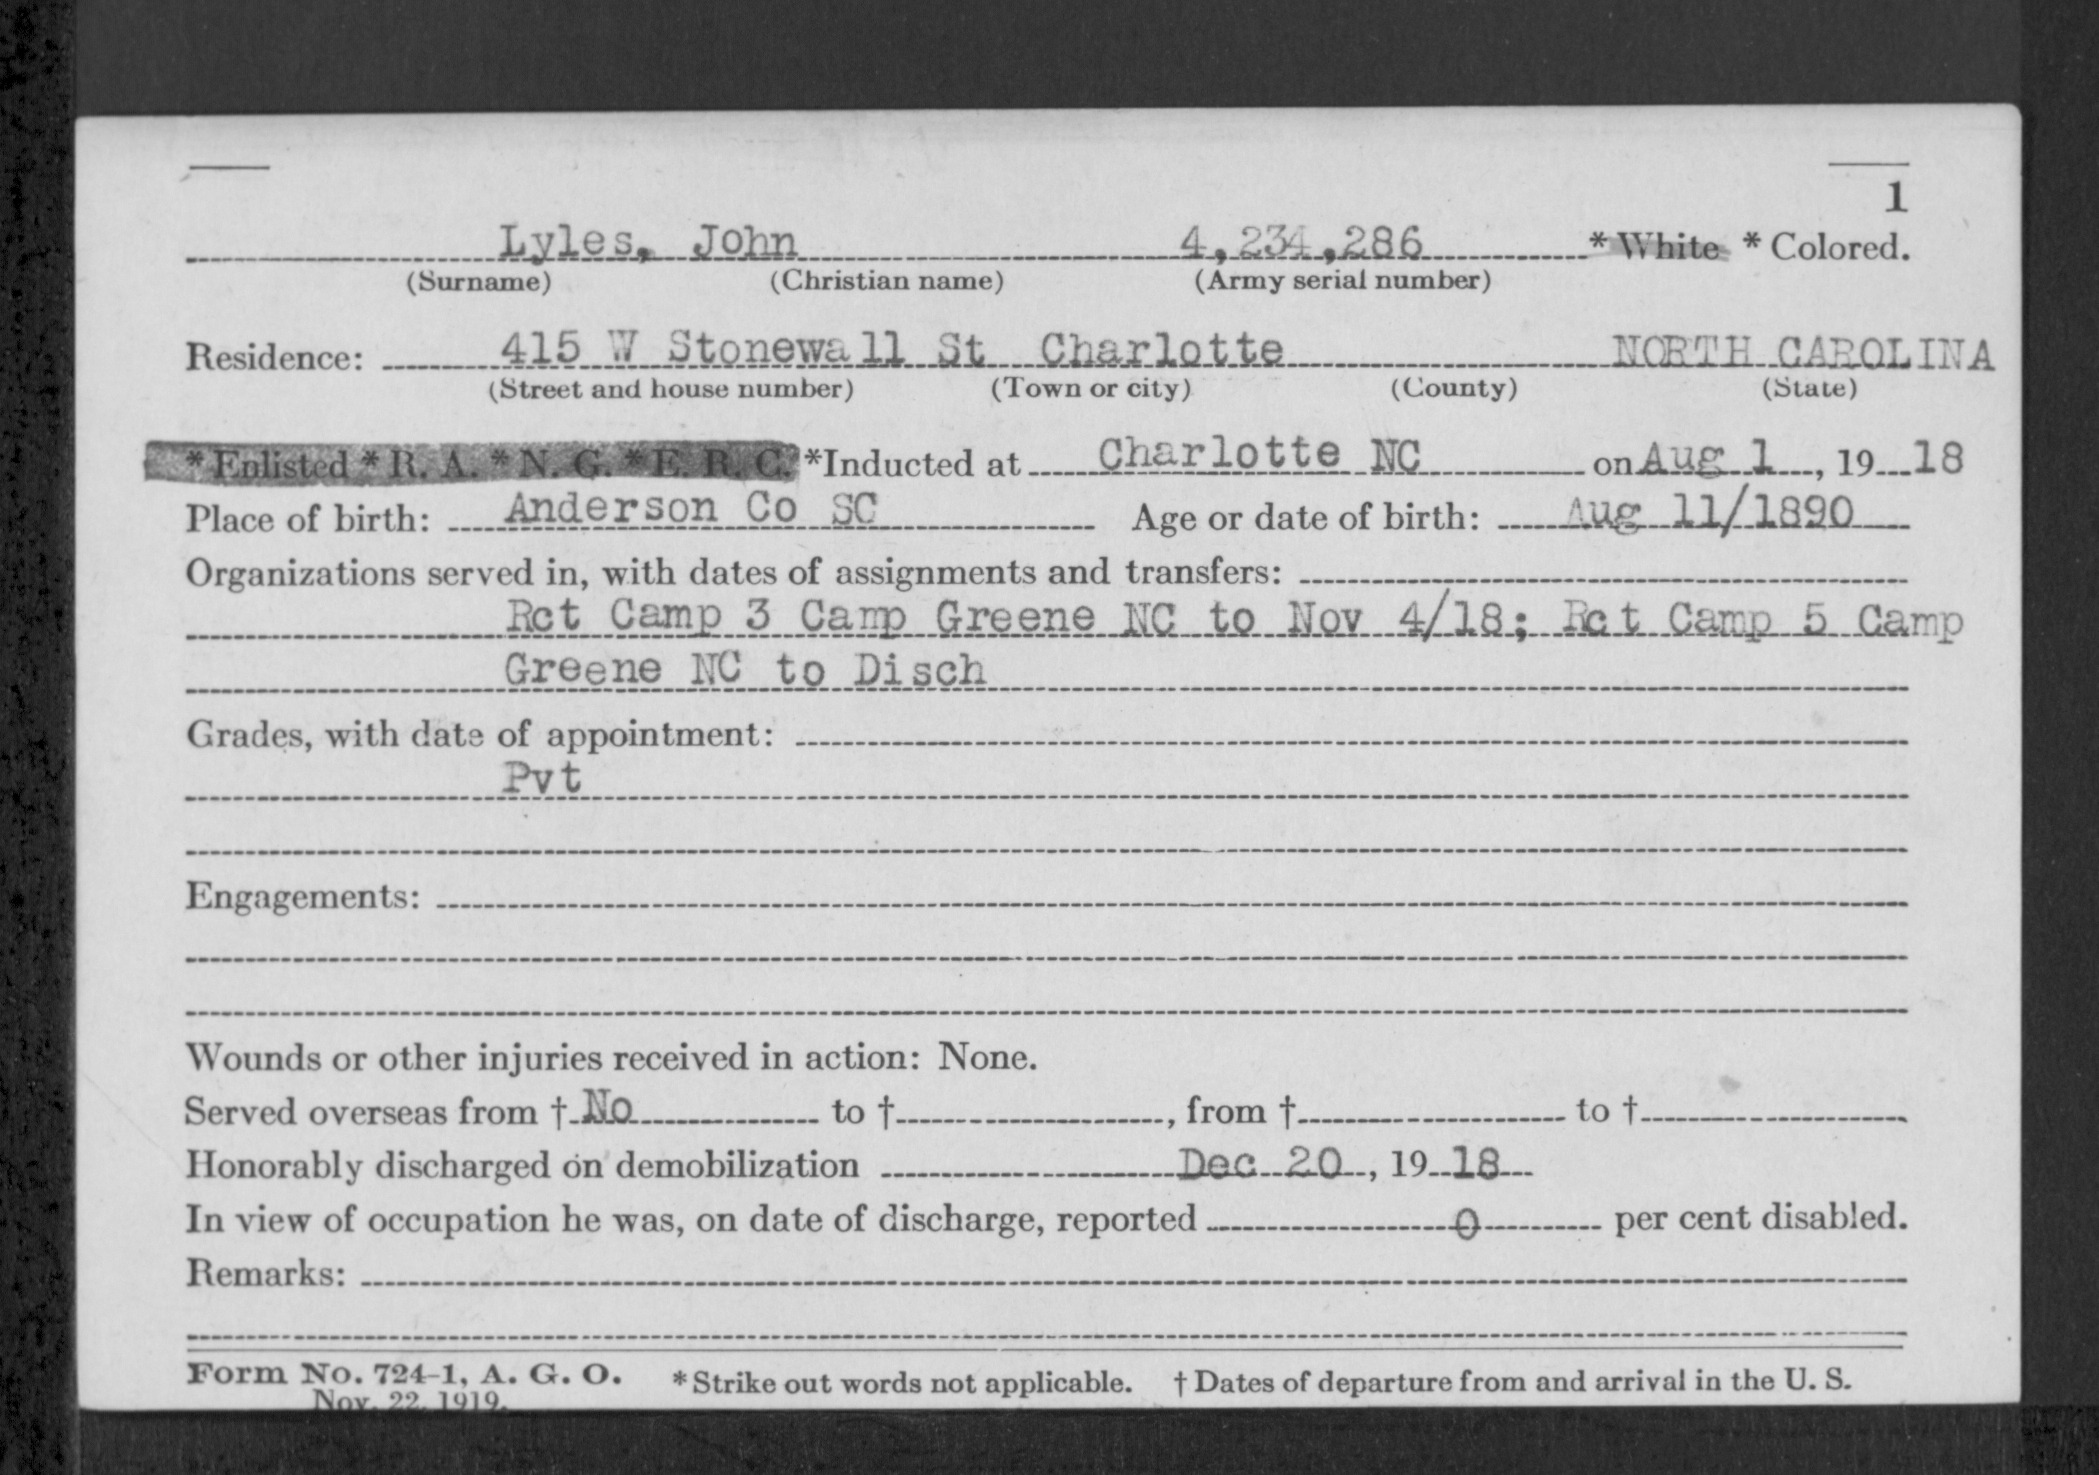 1
Lyles, John 4,234,286 * White * Colored.
(Surname) (Christian name) (Army serial number)
Residence: 415 W Stonewall St Charlotte NORTH CAROLINA
(Street and house number) (Town or city) (County) (State)
* Enlisted * R. A. * N. G. * E. R. C. *Inducted at Charlotte NC on Aug 1, 19 18
Place of birth: Anderson Co SC Age or date of birth: Aug 11/1890
Organizations served in, with dates of assignments and transfers:
Rct Camp 3 Camp Greene NC to Nov 4/18; Rct Camp 5 Camp
Greene NC to Disch
Grades, with date of appointment:
Pvt
Engagements:
Wounds or other injuries received in action: None.
Served overseas from † No to †, from † to †
Honorably discharged on demobilization Dec 20, 19 18
In view of occupation he was, on date of discharge, reported 0 per cent disabled.
Remarks:
Form No. 724-1, A. G. O. * Strike out words not applicable. † Dates of departure from and arrival in the U. S.
Nov. 22, 1919.